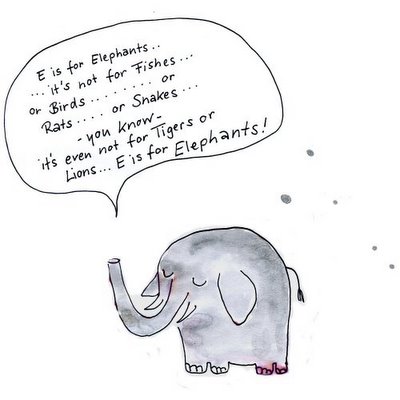 E is for Elephants..
... it's not for Fishes...
or Birds ......... or
Rats .... or Snakes...
- you know -
it's even not for Tigers or
Lions... E is for Elephants!